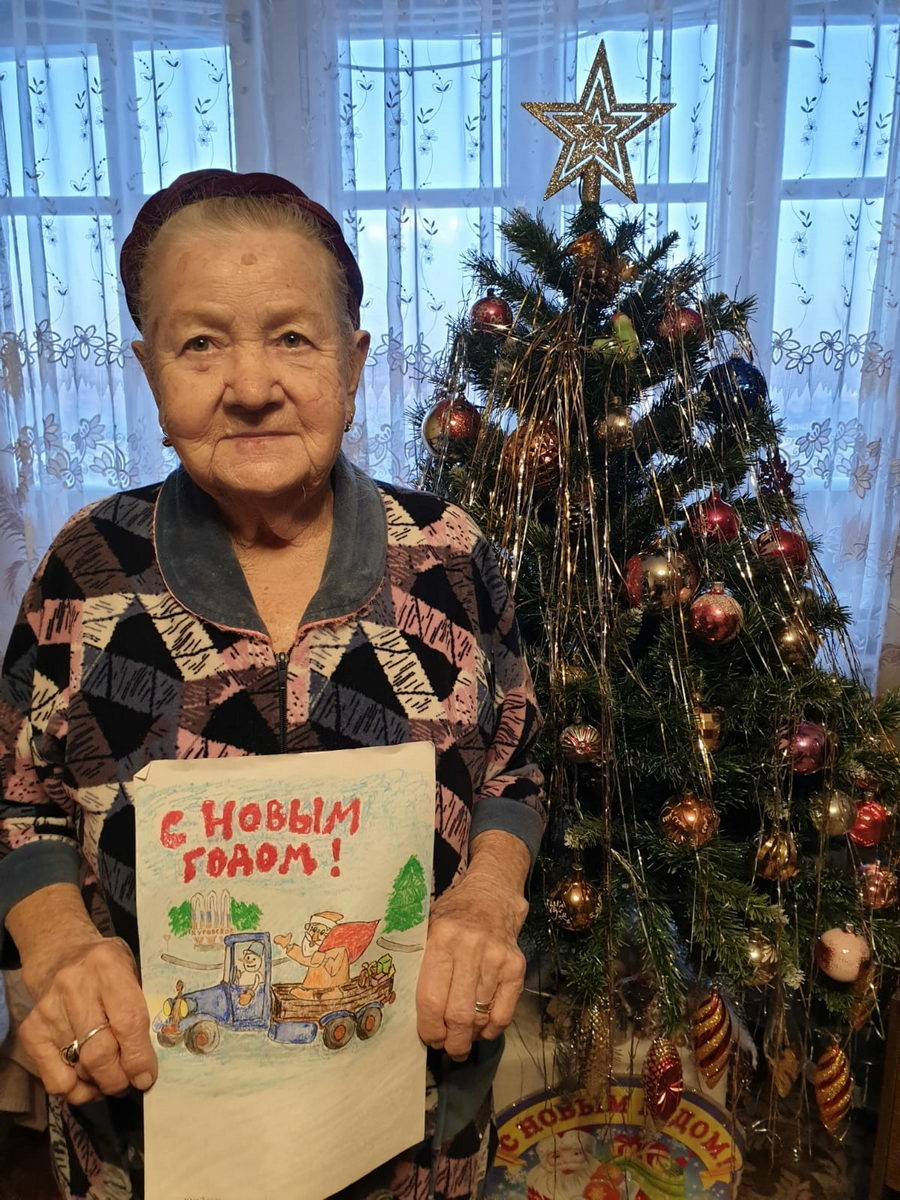 С НОВЫМ
ГОДОМ!
С НОВЫМ ГОДОМ!